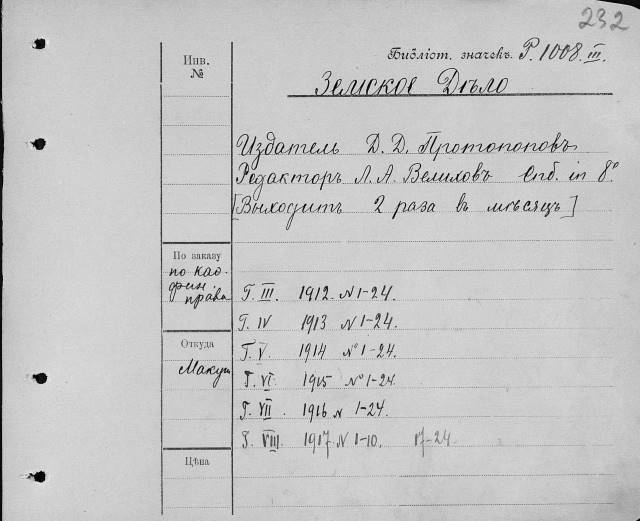 232
Библіот. значекъ. Р. 1008. III.
Инв. №
Земское Дѣло
Издатель Д. Д. Протопоповъ
Редакторъ Л. А. Велиховъ Спб. in 8°.
[Выходитъ 2 раза въ мѣсяцъ]
По заказу
по каѳ.
фин.
права
Г. III. 1912. N 1-24.
Г. IV 1913 N 1-24.
Откуда
Г. V. 1914 N° 1-24.
Макуш
Г. VI. 1915 N° 1-24.
Г. VII. 1916 N 1-24.
Г. VIII. 1917. N 1-10. 17-24.
Цѣна